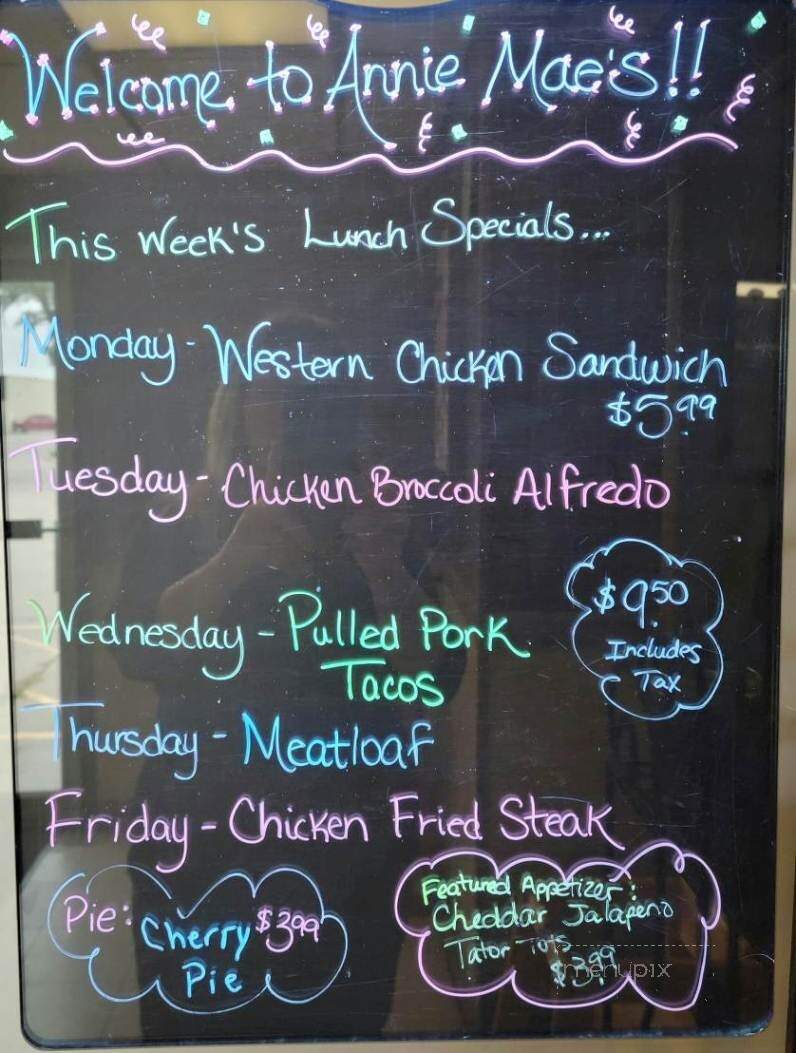 Welcome to Annie Mae's!!
This Week's Lunch Specials...
Monday - Western Chicken Sandwich
$5.99
Tuesday - Chicken Broccoli Alfredo
Wednesday - Pulled Pork
Tacos
$9.50
Includes
Tax
Thursday - Meatloaf
Friday - Chicken Fried Steak
Pie: Cherry $3.99
Pie
Featured Appetizer:
Cheddar Jalapeno
Tator Tots
$3.99
menupix